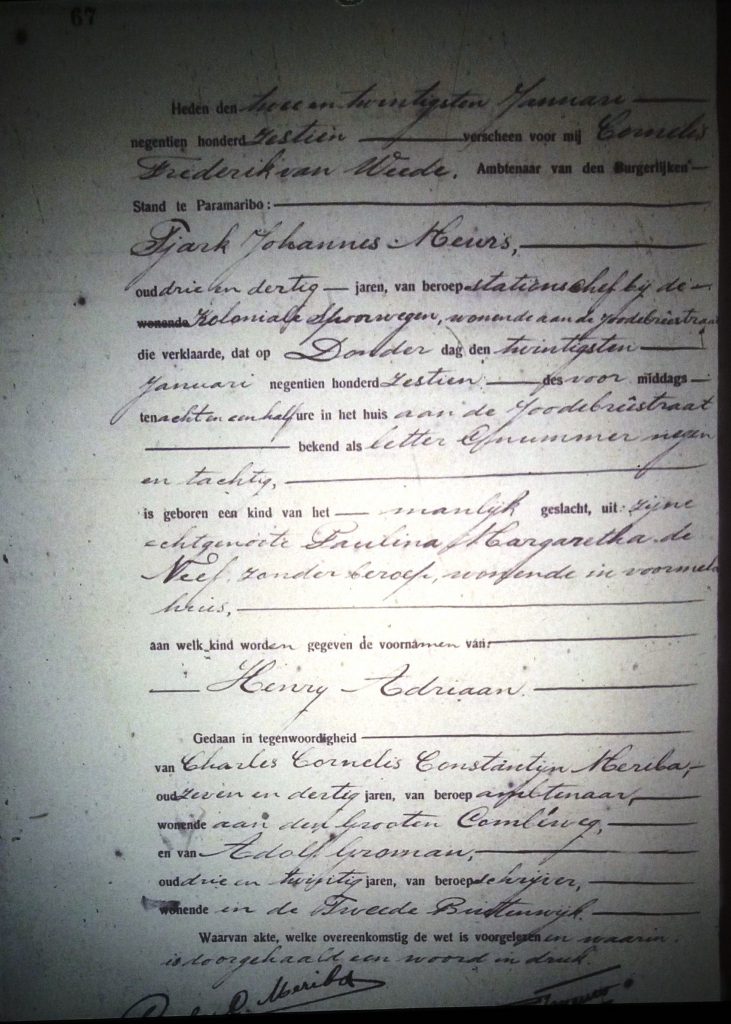 67
Heden den twee en twintigsten Januari
negentien honderd zestien verscheen voor mij Cornelis
Frederik van Weede, Ambtenaar van den Burgerlijken
Stand te Paramaribo:
Tjark Johannes Meurs,
oud drie en dertig jaren, van beroep stationschef bij de
wonende Koloniale Spoorwegen, wonende aan de Joodebreêstraat
die verklaarde, dat op Donder dag den twintigsten
Januari negentien honderd zestien des voor middags
ten acht en een half ure in het huis aan de Joodebreêstraat
bekend als letter C nummer negen
en tachtig,
is geboren een kind van het manlijk geslacht, uit zijne
echtgenoote Paulina Margaretha de
Neef, zonder beroep, wonende in voormeld
huis,
aan welk kind worden gegeven de voornamen van:
Henry Adriaan.
Gedaan in tegenwoordigheid
van Charles Cornelis Constantijn Meriba,
oud zeven en dertig jaren, van beroep ambtenaar,
wonende aan den Grooten Combéweg,
en van Adolf Groman,
oud drie en twintig jaren, van beroep schrijver,
wonende in de Tweede Buitenwijk.
Waarvan akte, welke overeenkomstig de wet is voorgelezen en waarin
is doorgehaald een woord in druk.
Meriba